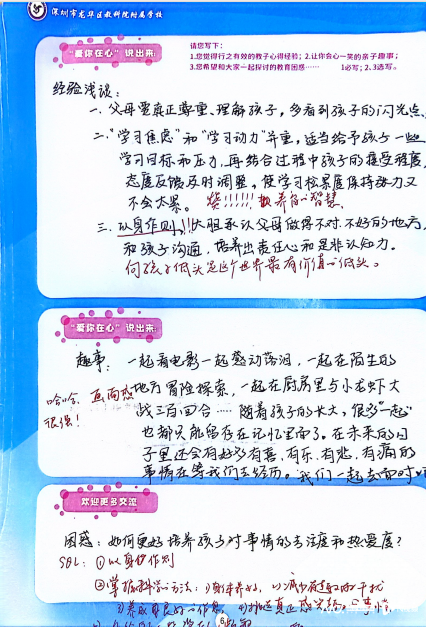 深圳市龙华区教科院附属学校
"爱你在心"说出来
请您写下:
1.您觉得行之有效的教子心得经验; 2.让你会心一笑的亲子趣事;
3.您希望和大家一起探讨的教育困惑…… 1必写; 2.3选写。
经验浅谈:
一、父母要真正尊重、理解孩子,多看到孩子的闪光点。
二、"学习焦虑"和"学习动力"并重,适当给予孩子一些
学习目标和压力,再结合过程中孩子的接受程度,
态度反馈及时调整,使学习松紧度保持动力又
不会太累。 赞!!!!! 教养的智慧
三、以身作则,!!大胆承认父母做得不对、不好的地方,
和孩子沟通,培养出责任心和是非认知力。
向孩子低头是这个世界最有价值的低头。
"爱你在心"说出来
趣事: 一起看电影一起感动落泪,一起在陌生的
地方冒险探索,一起在厨房里与小龙虾大
哈哈,画面感
战三百回合……随着孩子的长大,很多"一起"
很强!
也都只能留存在记忆里面了。在未来的日
子里还会有好多有喜、有乐、有悲、有痛的
事情在等我们去经历。我们一起去面对
欢迎更多交流
困惑:如何更好培养孩子对事情的专注度和热爱度?
①以身作则
②掌握科学的方法:
6